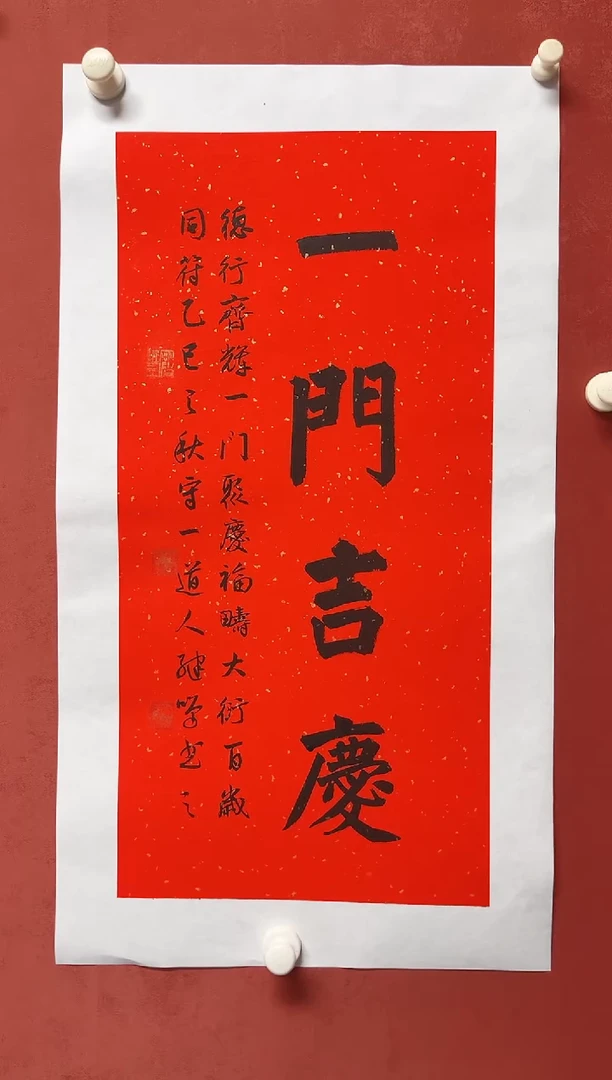 一門吉慶
德行齊輝一门聚慶福疇大衍百歲
同符乙巳之秋守一道人継學书之